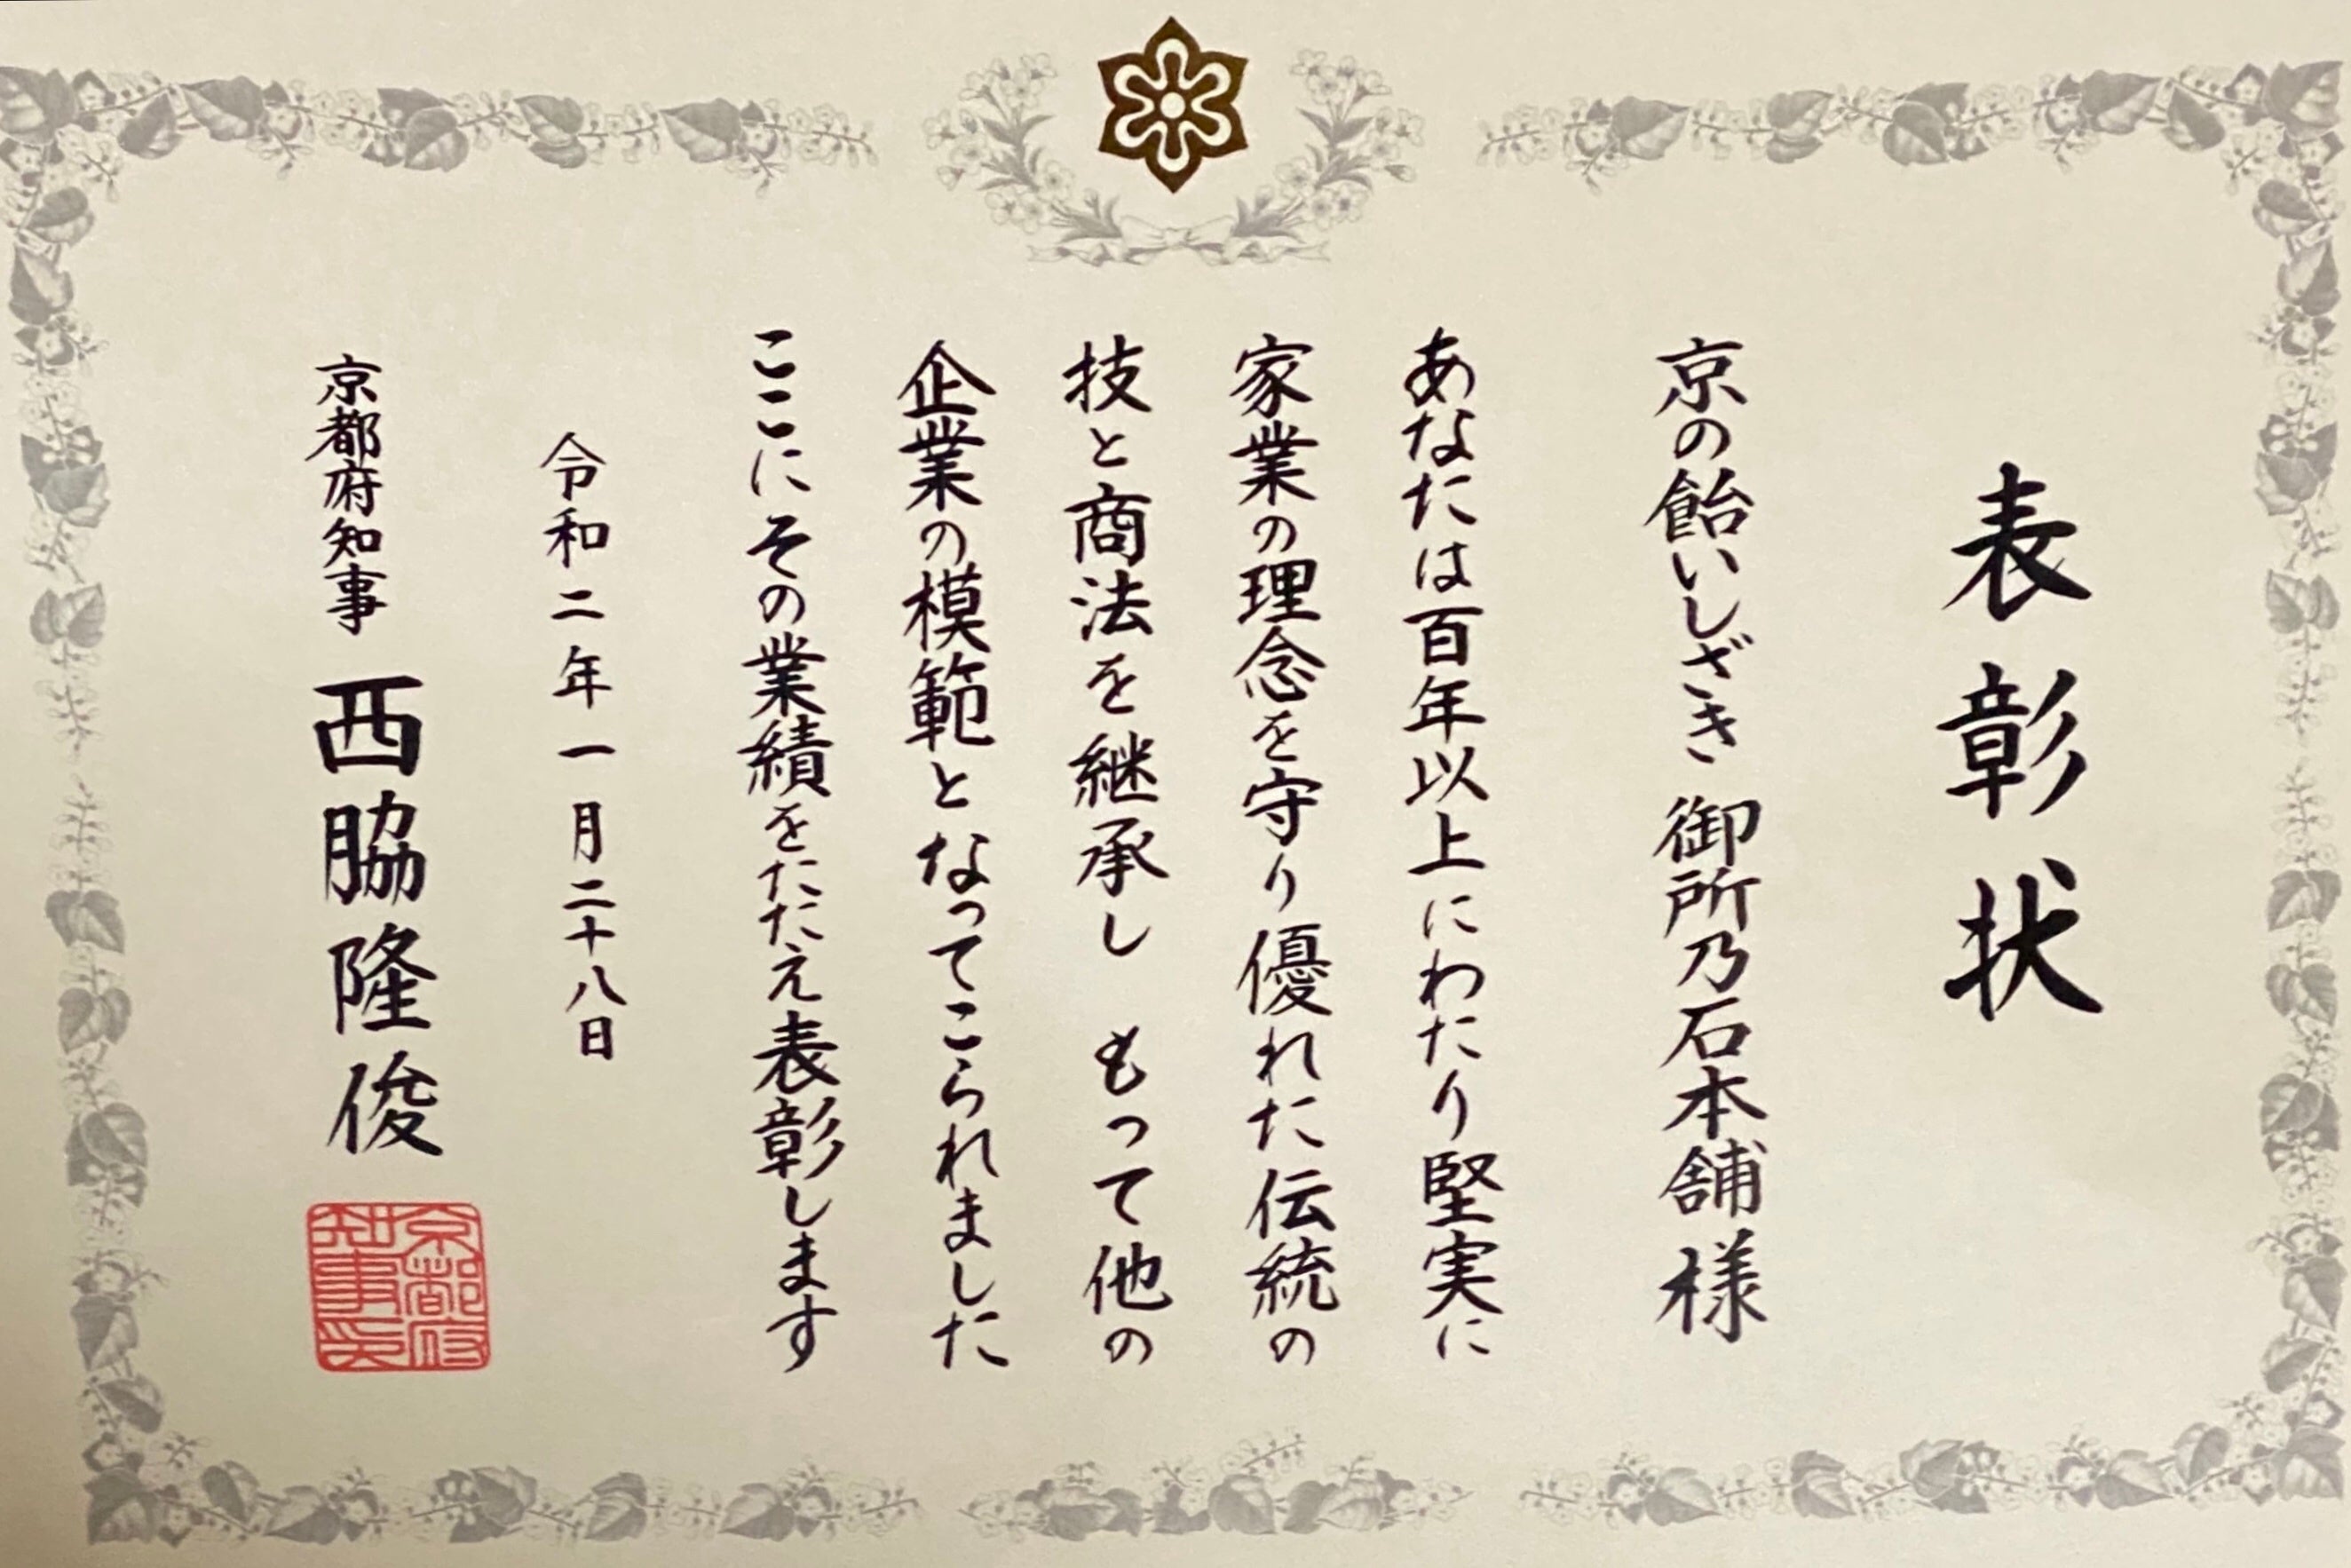 表彰状
京の飴いしざき 御所乃石本舗様
あなたは百年以上にわたり堅実に
家業の理念を守り優れた伝統の
技と商法を継承し もって他の
企業の模範となってこられました
ここにその業績をたたえ表彰します
令和二年一月二十八日
京都府知事 西脇隆俊
京都府
知事印